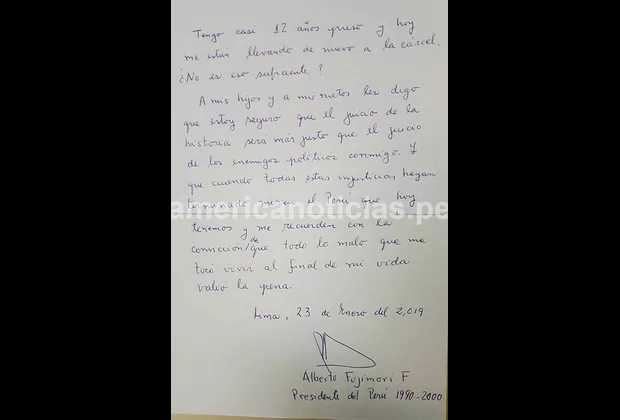 Tengo casi 12 años preso y hoy
me están llevando de nuevo a la cárcel.
¿No es eso suficiente?
A mis hijos y a mis nietos les digo
que estoy seguro que el juicio de la
historia será más justo que el juicio
de los enemigos políticos conmigo. Y
que cuando todas estas injusticias hayan
terminado miren el Perú que hoy
americanoticias.pe
tenemos y me recuerden con la
convicción/de que todo lo malo que me
tocó vivir al final de mi vida
valió la pena.
Lima, 23 de Enero del 2,019
Alberto Fujimori F
Presidente del Perú 1990-2000